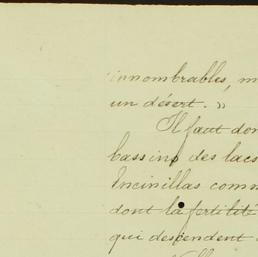 innombrables, m
un désert. »
Il faut don
bassins des lacs
Encinillas comm
dont la fertilité
qui descendent